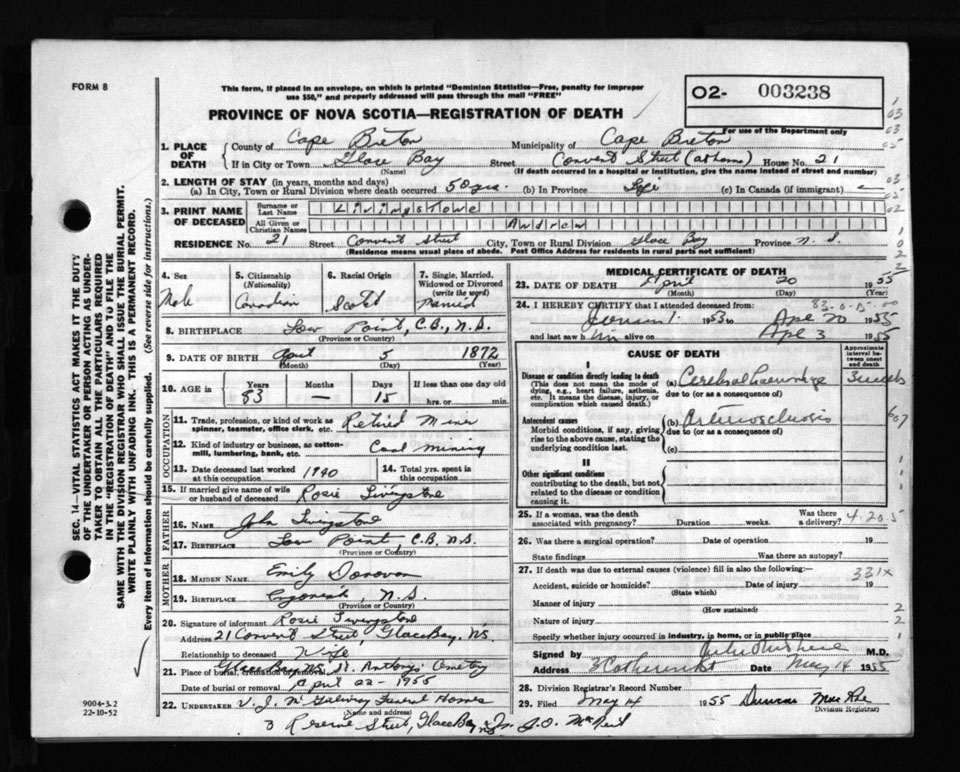 FORM 8
This form, if placed in an envelope, on which is printed "Dominion Statistics—Free, penalty for improper
use $50," and properly addressed will pass through the mail "FREE"
O2- 003238
For use of the Department only
PROVINCE OF NOVA SCOTIA—REGISTRATION OF DEATH
1. PLACE OF DEATH
County of Cape Breton Municipality of Cape Breton
If in City or Town Glace Bay Street Convent Street (at home) House No. 21
(Name) (If death occurred in a hospital or institution, give the name instead of street and number)
2. LENGTH OF STAY (in years, months and days)
(a) In City, Town or Rural Division where death occurred 50 yrs. (b) In Province Life (c) In Canada (if immigrant) —
3. PRINT NAME OF DECEASED
Surname or Last Name Livingstone
All Given or Christian Names Andrew
RESIDENCE No. 21 Street Convent Street City, Town or Rural Division Glace Bay Province N.S.
(Residence means usual place of abode. Post Office Address for residents in rural parts not sufficient)
4. Sex
Male
5. Citizenship
(Nationality)
Canadian
6. Racial Origin
Scotch
7. Single, Married,
Widowed or Divorced
(write the word)
Married
8. BIRTHPLACE Low Point, C.B., N.S.
(Province or Country)
9. DATE OF BIRTH April 5 1872
(Month) (Day) (Year)
10. AGE in Years Months Days If less than one day old
83 — 15 hrs. or min.
OCCUPATION
11. Trade, profession, or kind of work as
spinner, teamster, office clerk, etc. Retired Miner
12. Kind of industry or business, as cotton-
mill, lumbering, bank, etc. Coal mining
13. Date deceased last worked
at this occupation 1940
14. Total yrs. spent in
this occupation
15. If married give name of wife
or husband of deceased Rosie Livingstone
FATHER
16. NAME John Livingstone
17. BIRTHPLACE Low Point, C.B. N.S.
(Province or Country)
MOTHER
18. MAIDEN NAME Emily Donovan
19. BIRTHPLACE N.S.
(Province or Country)
20. Signature of informant Rosie Livingstone
Address 21 Convent Street, Glace Bay, N.S.
Relationship to deceased Wife
21. Place of burial, cremation or removal Glace Bay, N.S. St. Anthony's Cemetery
Date of burial or removal April 22 - 1955
22. UNDERTAKER V.J. McGillivray Funeral Homes
(Name and address)
3 Reserve Street, Glace Bay, N.S. J.O. McNeil
MEDICAL CERTIFICATE OF DEATH
23. DATE OF DEATH April 20 1955
(Month) (Day)
24. I HEREBY CERTIFY that I attended deceased from:
83-0-15-00
1953 to Apr 20 1955
and last saw him alive on Apr 3 1955
CAUSE OF DEATH
Approximate
interval be-
tween onset
and death
Disease or condition directly leading to death
(This does not mean the mode of
dying, e.g., heart failure, asthenia,
etc. It means the disease, injury, or
complication which caused death.)
(a) Cerebral haemorrhage 3 weeks
due to (or as a consequence of)
Antecedent causes
Morbid conditions, if any, giving
rise to the above cause, stating the
underlying condition last.
(b) Arteriosclerosis
due to (or as a consequence of)
(c)
II
Other significant conditions
contributing to the death, but not
related to the disease or condition
causing it.
25. If a woman, was the death
associated with pregnancy? Duration weeks. Was there
a delivery?
4-20-5
26. Was there a surgical operation? Date of operation 19
State findings Was there an autopsy?
27. If death was due to external causes (violence) fill in also the following:—
331X
Accident, suicide or homicide? Date of injury 19
(State which)
Manner of injury
(How sustained)
Nature of injury
Specify whether injury occurred in industry, in home, or in public place
Signed by M.D.
Address Date May 14 1955
28. Division Registrar's Record Number
29. Filed May 14 1955 Duncan MacRae
Division Registrar
SEC. 14—VITAL STATISTICS ACT MAKES IT THE DUTY
OF THE UNDERTAKER OR PERSON ACTING AS UNDER-
TAKER TO OBTAIN ALL THE PARTICULARS REQUIRED
IN THE "REGISTRATION OF DEATH" AND TO FILE THE
SAME WITH THE DIVISION REGISTRAR WHO SHALL ISSUE THE BURIAL PERMIT.
WRITE PLAINLY WITH UNFADING INK. THIS IS A PERMANENT RECORD.
Every item of information should be carefully supplied. (See reverse side for instructions.)
9004-3.2
22-10-52